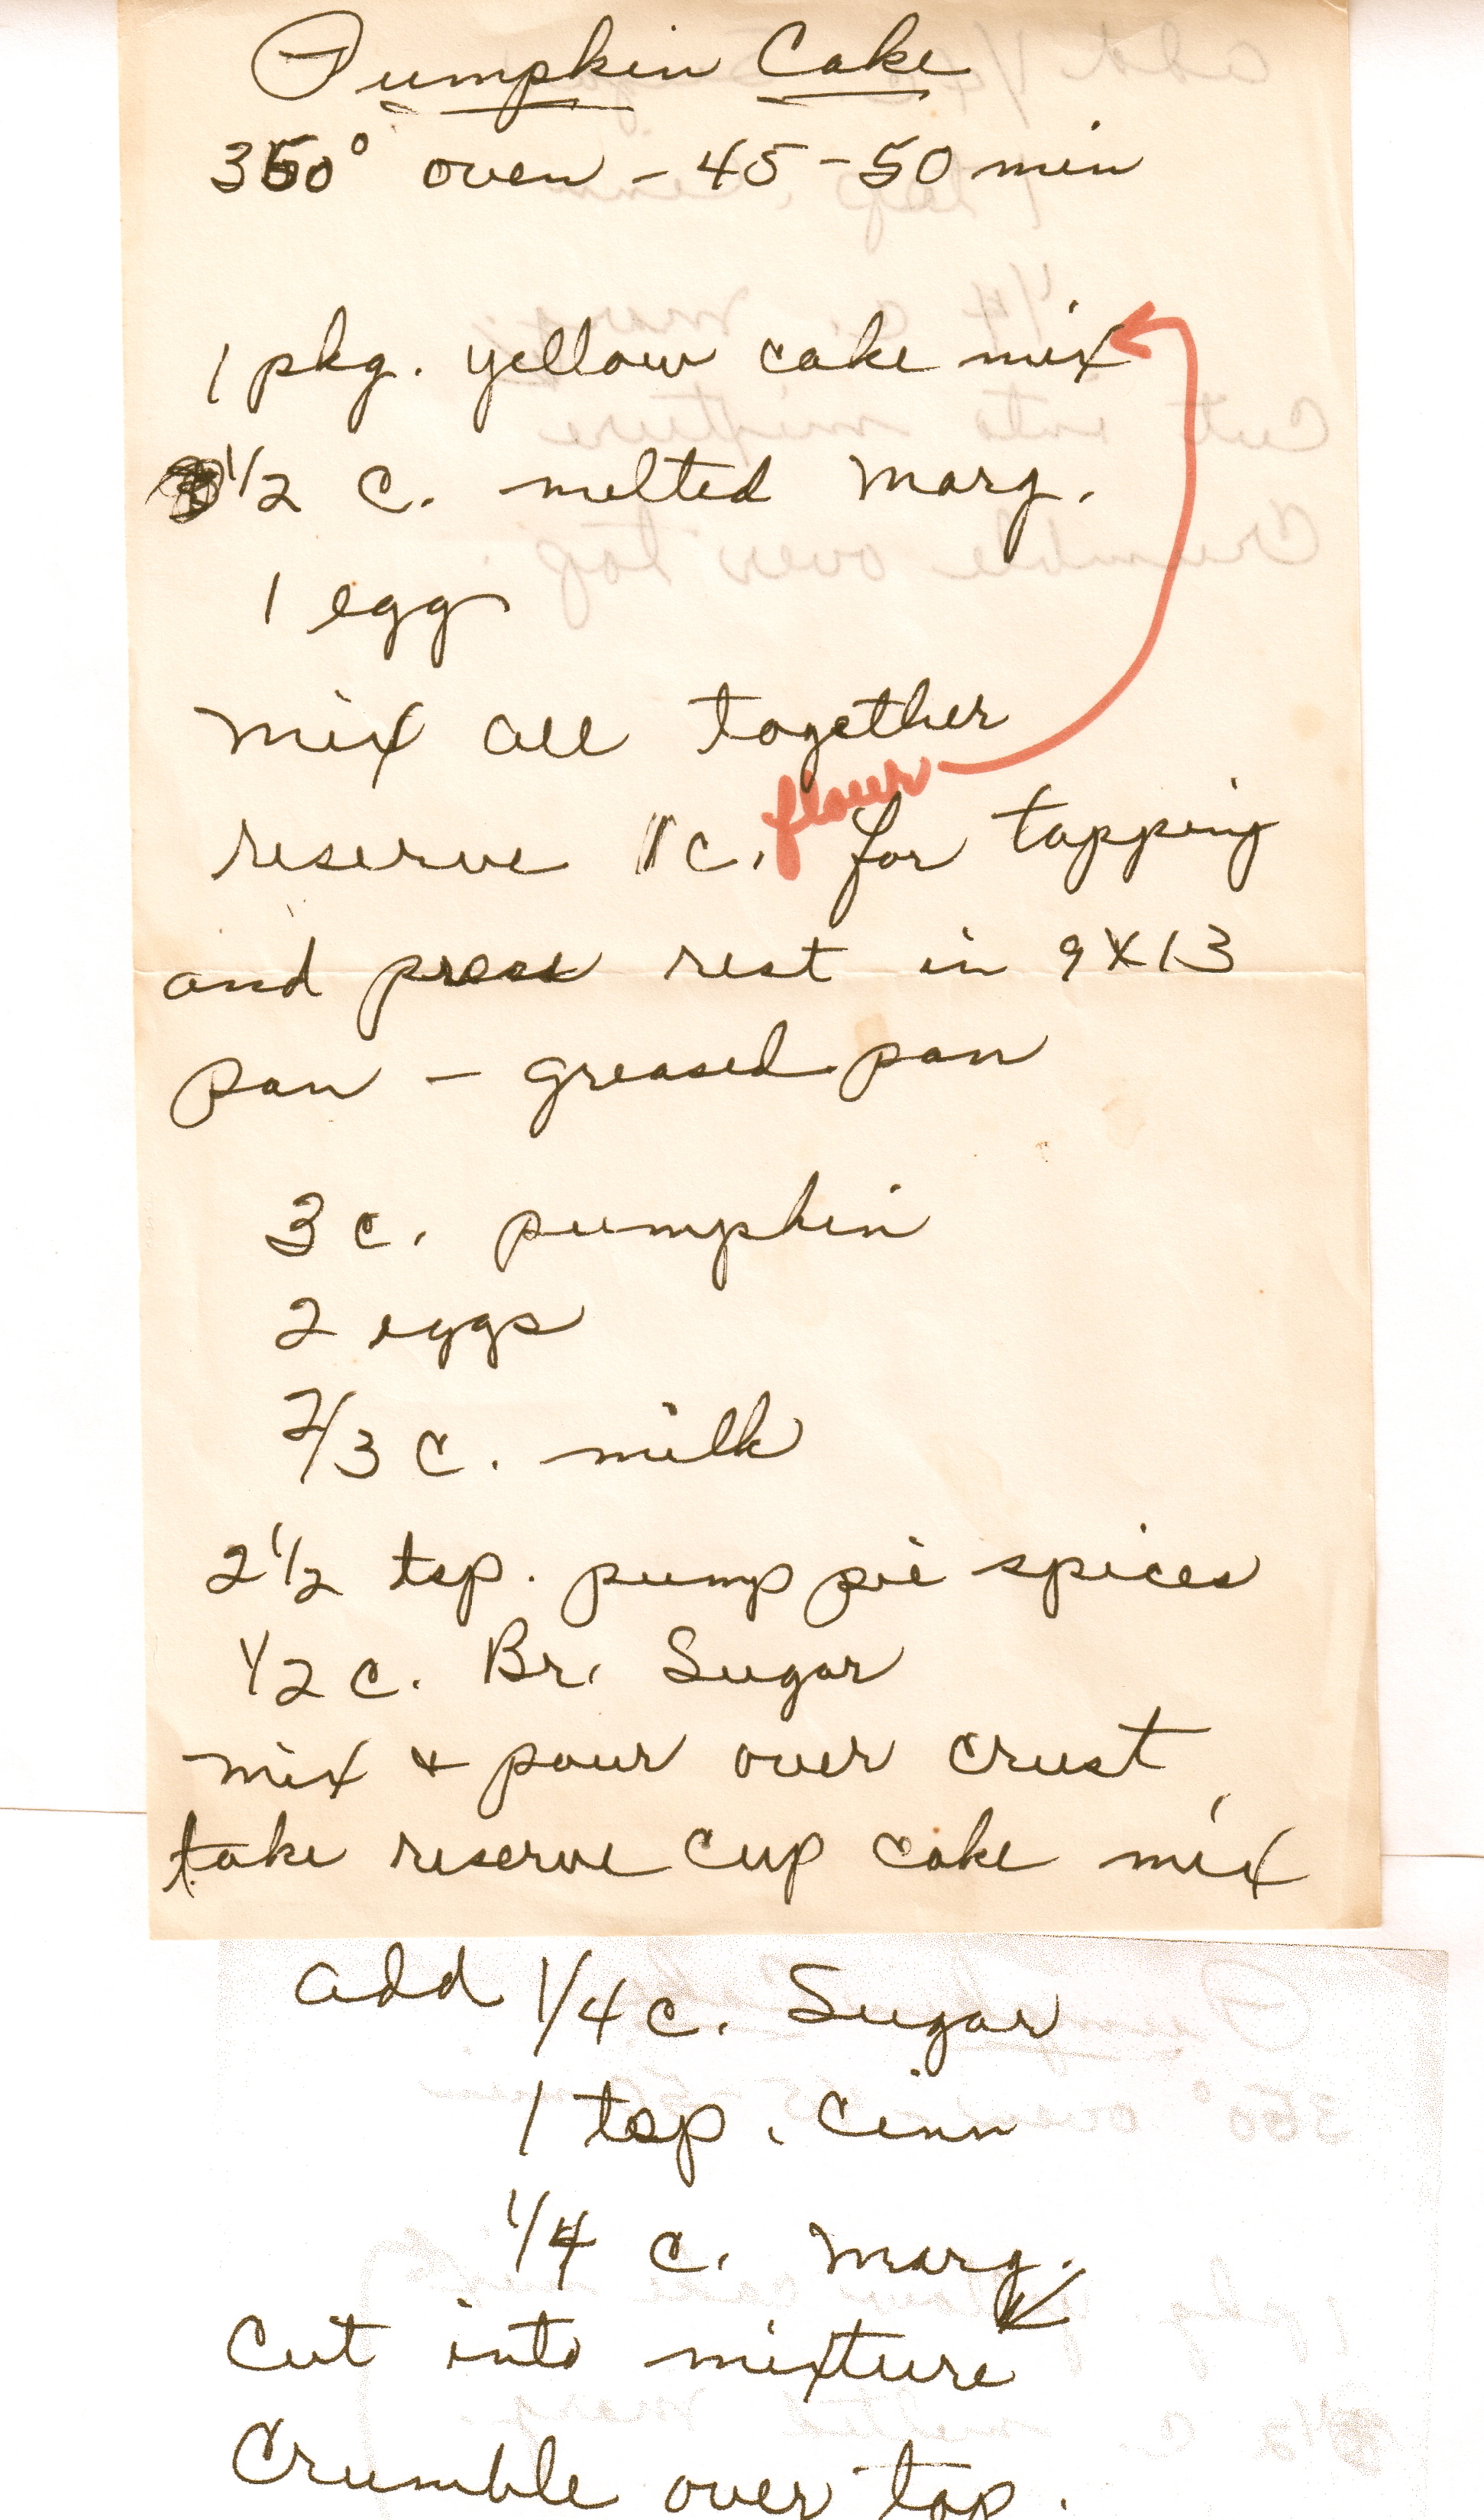 Pumpkin Cake
350° oven - 45-50 min
1 pkg. yellow cake mix
1/2 c. melted marg.
1 egg
mix all together
flour
reserve 1 c. for topping
and press rest in 9X13
pan - greased pan
3 c. pumpkin
2 eggs
2/3 c. milk
2 1/2 tsp. pump pie spices
1/2 c. Br. Sugar
mix & pour over crust
take reserve cup cake mix
add 1/4 c. Sugar
1 tsp. cinn
1/4 c. marg.
Cut into mixture
Crumble over top.